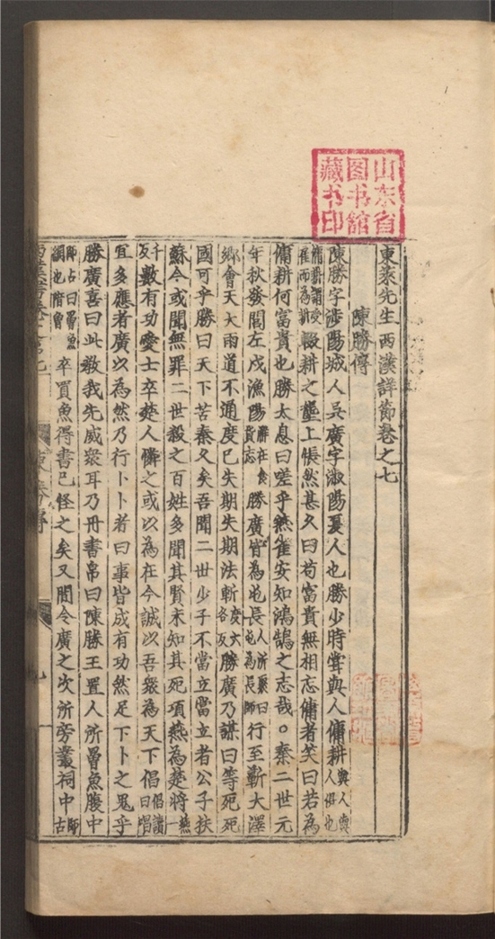 東萊先生西漢詳節卷之七
陳勝傳
陳勝字涉陽城人吳廣字淑陽夏人也勝少時嘗與人傭耕與人俱也
傭耕謂受雇而爲耕輟耕之壟上悵然甚久曰苟富貴無相忘傭者笑曰若爲
傭耕何富貴也勝太息曰嗟乎燕雀安知鴻鵠之志哉。秦二世元
年秋發閭左戍漁陽勝廣皆爲屯長人所聚曰屯爲長帥行至蘄大澤
鄉會天大雨道不通度已失期失期法斬度大各反勝廣乃謀曰等死死
國可乎勝曰天下苦秦久矣吾聞二世少子不當立當立者公子扶
蘇今或聞無罪二世殺之百姓多聞其賢未知其死項燕爲楚將燕一
千反數有功愛士卒楚人憐之或以爲在今誠以吾衆爲天下倡倡讀曰唱
宜多應者廣以爲然乃行卜卜者曰事皆成有功然足下卜之鬼乎
勝廣喜曰此教我先威衆耳乃丹書帛曰陳勝王置人所罾魚腹中
師古曰罾魚網也音曾卒買魚得書已怪之矣又間令廣之次所旁叢祠中師古
山东省图书馆藏书印